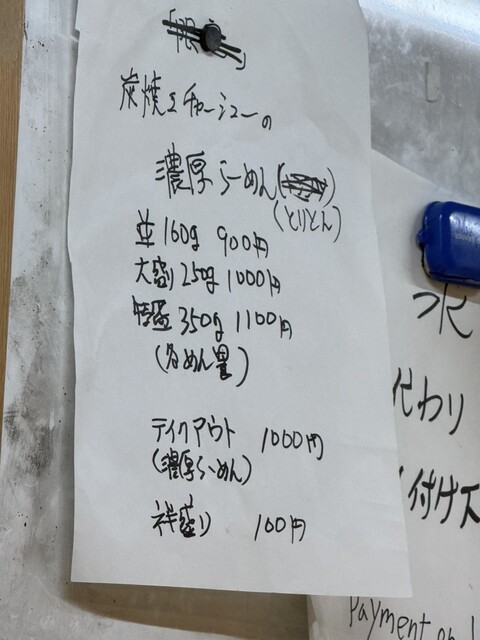 炭焼きチャーシューの
濃厚らーめん
(とりとん)
並 160g 900円
大盛り 250g 1000円
特盛 350g 1100円
(各めん量)
テイクアウト 1000円
(濃厚らーめん)
盛り 100円
水
代わり
付け
Payment